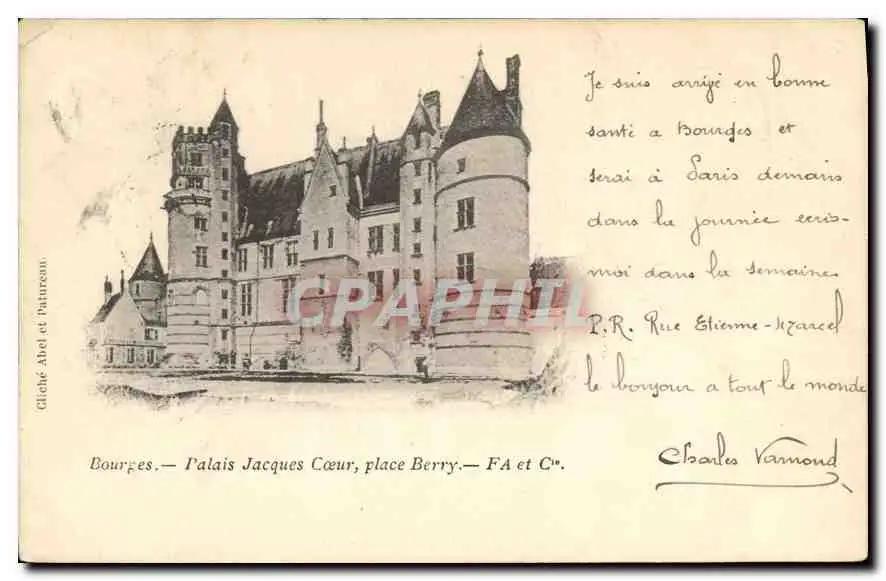 Je suis arrivé en bonne
santé a Bourges et
serai à Paris demain
dans la journée ecris-
moi dans la semaine
P.R. Rue Etienne-Marcel
le bonjour a tout le monde
Charles Varmond
CPAPHIL
Cliché Abel et Patureau
Bourges.— Palais Jacques Cœur, place Berry.— FA et Cie.